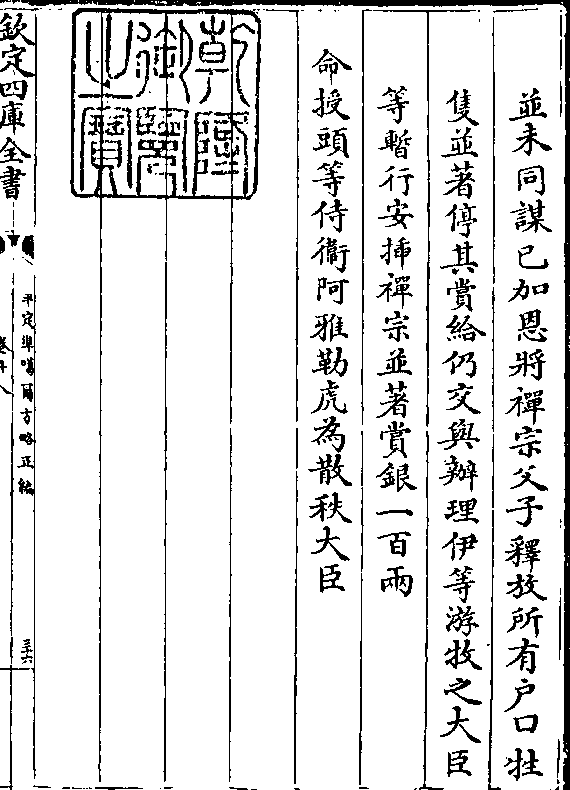 並未同謀已加恩將禪宗父子釋放所有户口牲
隻並著停其賞給仍交與辦理伊等游牧之大臣
等暫行安揷禪宗並著賞銀一百兩
命授頭等侍衛阿雅勒虎為散秩大臣
乾隆御覽之寶
欽定四庫全書
平定準噶爾方略正編
三十六